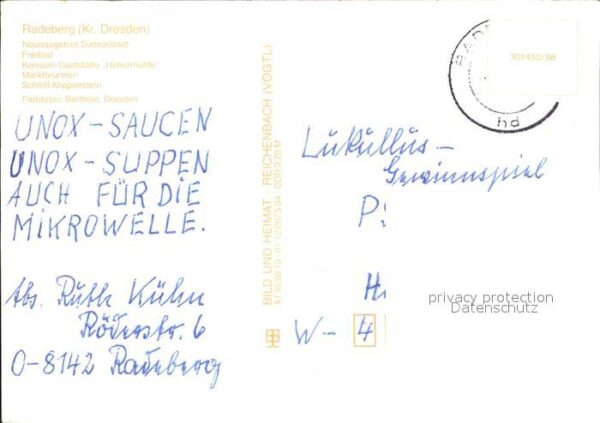 Radeberg (Kr. Dresden)
Neubaugebiet Südvorstadt
Freibad
Konsum-Gaststätte „Hüttermühle"
Marktbrunnen
Schloß Klippenstein
Farbfotos: Berthold, Dresden
UNOX-SAUCEN
UNOX-SUPPEN
AUCH FÜR DIE
MIKROWELLE.
Abs. Ruth Kühn
Röderstr. 6
O-8142 Radeberg
BILD UND HEIMAT · REICHENBACH (VOGTL)
DDR 0,20 M
301450/88
hd
Lukullus-
Gewinnspiel
P:
H:
W- 4
privacy protection
Datenschutz